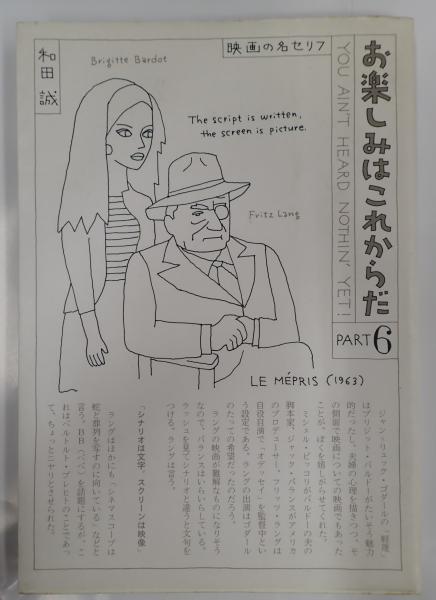 お楽しみはこれからだ
YOU AIN'T HEARD NOTHIN' YET!
PART 6
映画の名セリフ
和田 誠
Brigitte Bardot
The script is written,
the screen is picture.
Fritz Lang
LE MÉPRIS (1963)
ジャン=リュック・ゴダールの「軽蔑」
はブリジット・バルドーがたいそう魅力
的だったし、夫婦の心理を描きつつ、そ
の側面で映画についての映画でもあった
ことが、ぼくを嬉しがらせてくれた。
ミシェル・ピッコリがバルドーの夫の
脚本家、ジャック・パランスがアメリカ
のプロデューサー、フリッツ・ラングは
自役自演で「オデッセイ」を監督中とい
う設定である。ラングの出演はゴダール
のたっての希望だったのだろう。
ラングの映画が難解なものになりそう
なので、パランスはいらいらしている。
ラッシュを見てシナリオと違うと文句を
つける。ラングは言う。
「シナリオは文字、スクリーンは映像」
ラングはほかにも「シネマスコープは
蛇と葬列を写すのに向いている」などと
言う。BB(ベベ)を話題にするが、こ
れはベルトルト・ブレヒトのことであっ
て、ちょっとニヤリとさせられた。